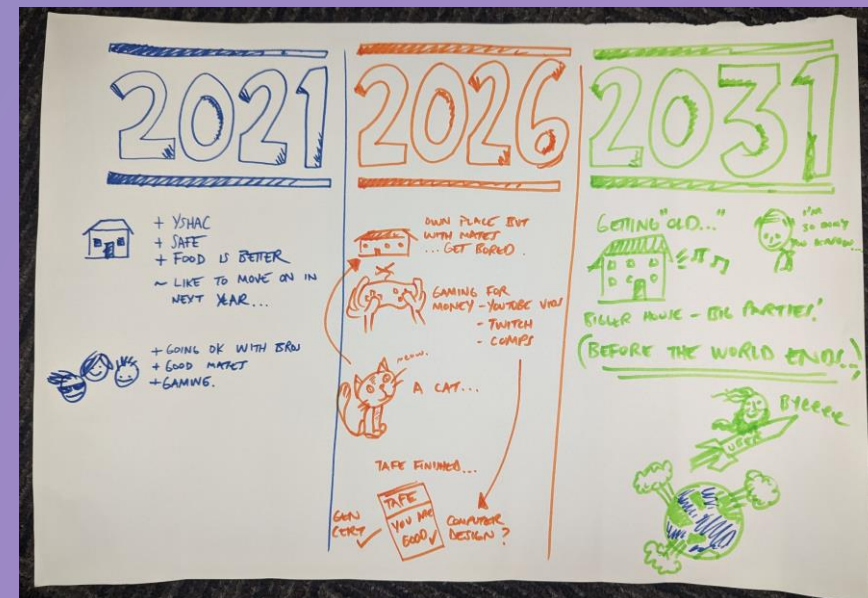 2021
+ YSHAC
+ SAFE
+ FOOD IS BETTER
~ LIKE TO MOVE ON IN
NEXT YEAR...
+ GOING OK WITH BRO
+ GOOD MATES
+ GAMING.
2026
OWN PLACE BUT
WITH MATES
... GET BORED.
GAMING FOR
MONEY - YOUTUBE VIDS
- TWITCH
- COMPS
MEOW.
A CAT...
TAFE FINISHED...
GEN
CERT
TAFE
YOU ARE
GOOD
COMPUTER
DESIGN?
2031
GETTING "OLD..."
I'M
SO
BIGGER HOUSE - BIG PARTIES!
(BEFORE THE WORLD ENDS...)
BYEEEE
UBER